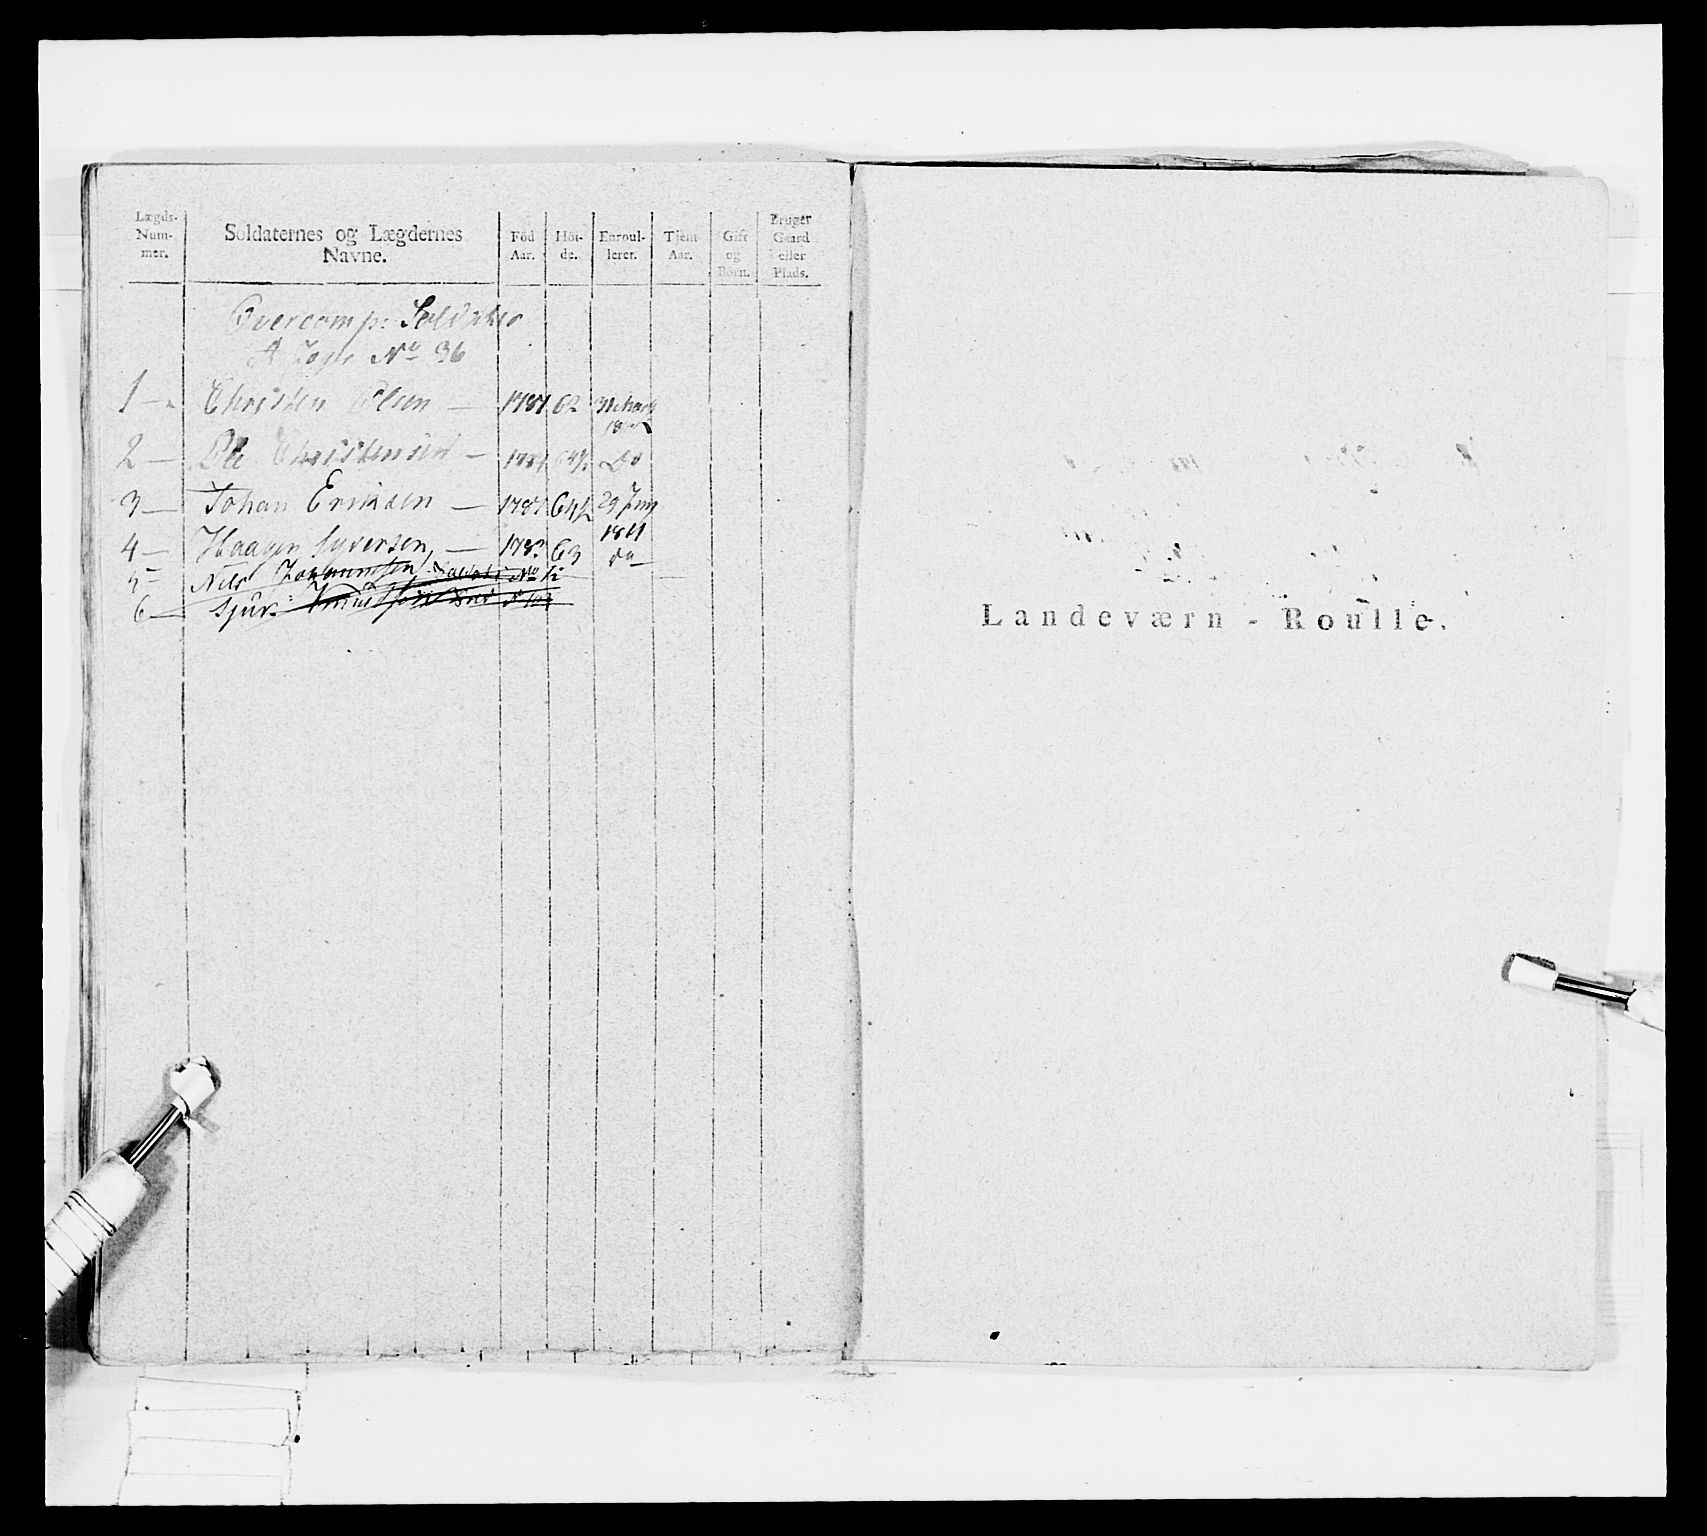 Lægds-Num-mer. Soldaternes og Lægdernes Navne. Föd Aar. Höi-de. Enroul-leret. Tjent Aar. Gift og Börn. Bruger Gaard eller Plads.
Overcomp: Soldater
No 36
1 — Christen Olsen — 1787 62
2 — Ole Christensen — Do
3 — Johan Eriksen — 1787 64½ 29 Juny 1811
4 — Haagen Syversen — 1783 63 do
5 — Nils Johannesen No
6 — Sjur Knudsen
Landeværn - Roulle.